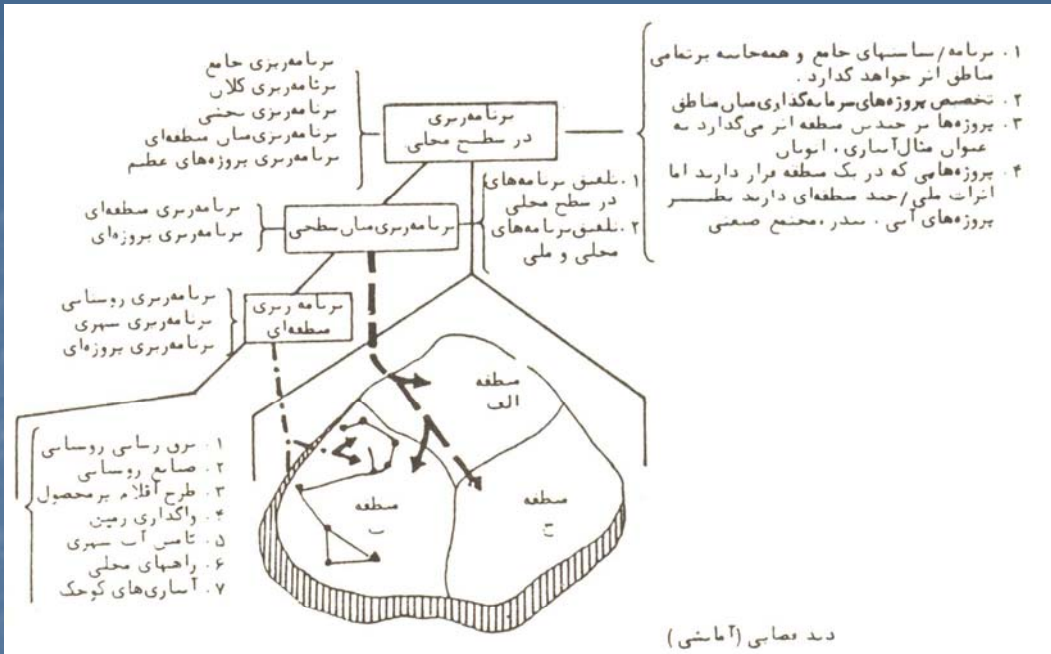 برنامه‌ریزی جامع
برنامه‌ریزی کلان
برنامه‌ریزی بخشی
برنامه‌ریزی میان منطقه‌ای
برنامه‌ریزی پروژه‌های عظیم
برنامه‌ریزی
در سطح محلی
۱. برنامه/سیاستهای جامع و همه‌جانبه برتمامی
مناطق اثر خواهد گذارد.
۲. تخصیص پروژه‌های سرمایه‌گذاری میان مناطق
۳. پروژه‌ها بر چندین منطقه اثر می‌گذارد به
عنوان مثال آبیاری، اتوبان
۴. پروژه‌هایی که در یک منطقه قرار دارند اما
اثرات ملی/چند منطقه‌ای دارند نظیر
پروژه‌های آبی، بندر، مجتمع صنعتی
برنامه‌ریزی منطقه‌ای
برنامه‌ریزی پروژه‌ای
برنامه‌ریزی میان سطحی
۱. تلفیق برنامه‌های
در سطح محلی
۲. تلفیق برنامه‌های
محلی و ملی
برنامه‌ریزی روستایی
برنامه‌ریزی شهری
برنامه‌ریزی پروژه‌ای
برنامه ریزی
منطقه‌ای
۱. برق رسانی روستایی
۲. صنایع روستایی
۳. طرح اقلام پرمحصول
۴. واگذاری زمین
۵. تامین آب شهری
۶. راههای محلی
۷. آبیاری‌های کوچک
منطقه
الف
منطقه
ب
منطقه
ج
دید فضایی (آمایشی)